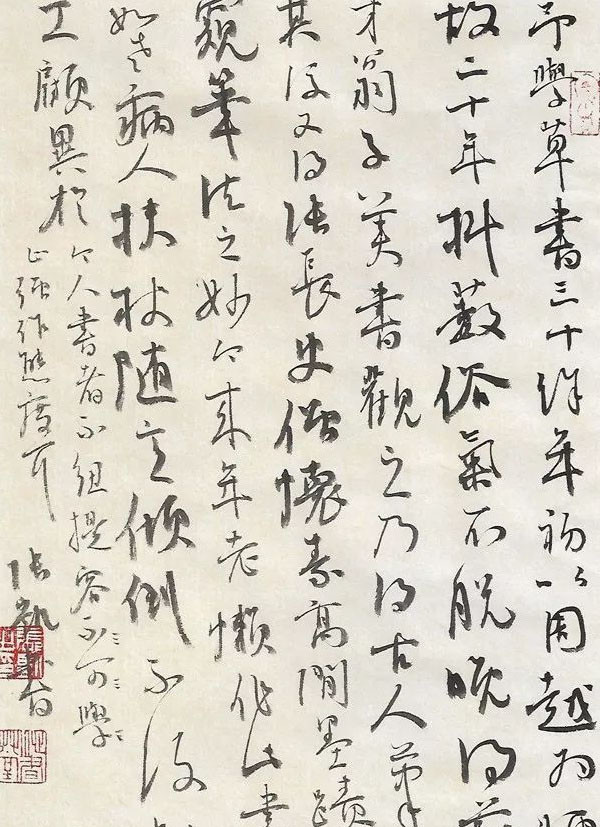 予學草書三十餘年初以周越為師
故二十年抖擻俗氣不脫晚得
才翁子美書觀之乃得古人筆
其後又得張長史僧懷素高閒墨蹟
窺筆法之妙今來年老懶作此書
如老病人扶杖隨意傾倒不復
工顧異於
今人書者不紐提容不可學
止強作態度耳
張凱